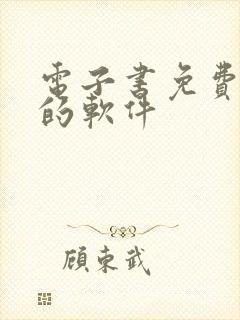 電子書免費
的軟件
顧東武